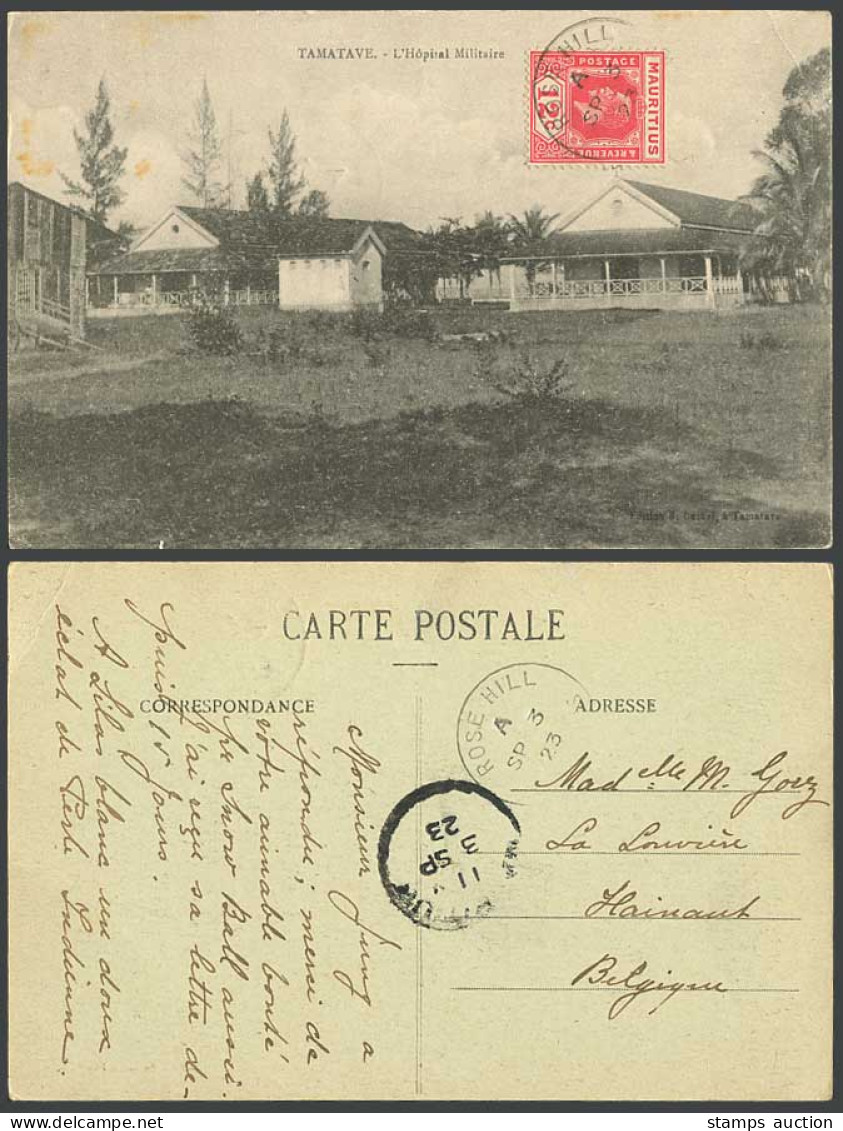 TAMATAVE. - L'Hôpital Militaire
ROSE HILL
A
SP 3
23
POSTAGE
MAURITIUS
12c
& REVENUE
à Tamatave
CARTE POSTALE
CORRESPONDANCE
ADRESSE
ROSE HILL
A
SP 3
23
11
SP
3
23
Monsieur Jung a
répondu; merci de
votre aimable bonté
Snow Ball aussi.
j'ai reçu sa lettre de-
puis 15 Jours.
A Lilas blanc un doux
éclat de Perle Indienne.
Madelle M. Goez
La Louvière
Hainaut
Belgique
stamps auction